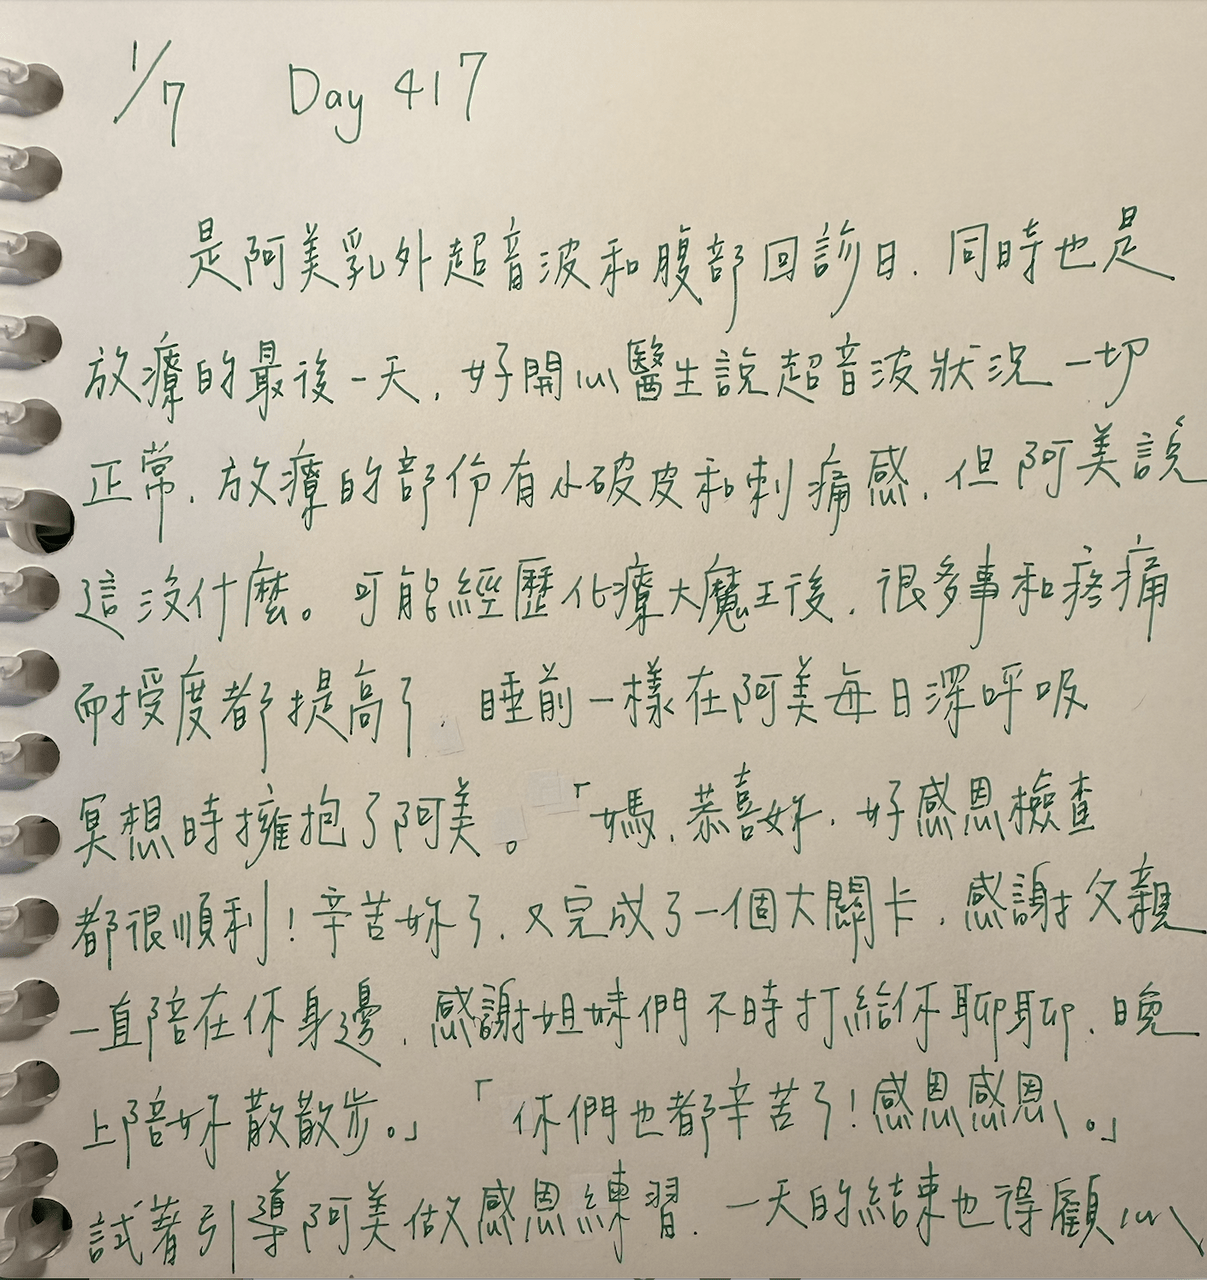 1/7 Day 417
是阿美乳外超音波和腹部回診日.同時也是
放療的最後一天,好開心醫生說超音波狀況一切
正常.放療的部份有小破皮和刺痛感,但阿美說
這沒什麼。可能經歷化療大魔王後,很多事和疼痛
耐受度都提高了.睡前一樣在阿美每日深呼吸
冥想時擁抱了阿美。「媽,恭喜妳.好感恩檢查
都很順利!辛苦妳了.又完成了一個大關卡.感謝父親
一直陪在你身邊,感謝姐妹們不時打給你聊聊.晚
上陪妳散散步。」「你們也都辛苦了!感恩感恩。」
試著引導阿美做感恩練習.一天的結束也得顧心